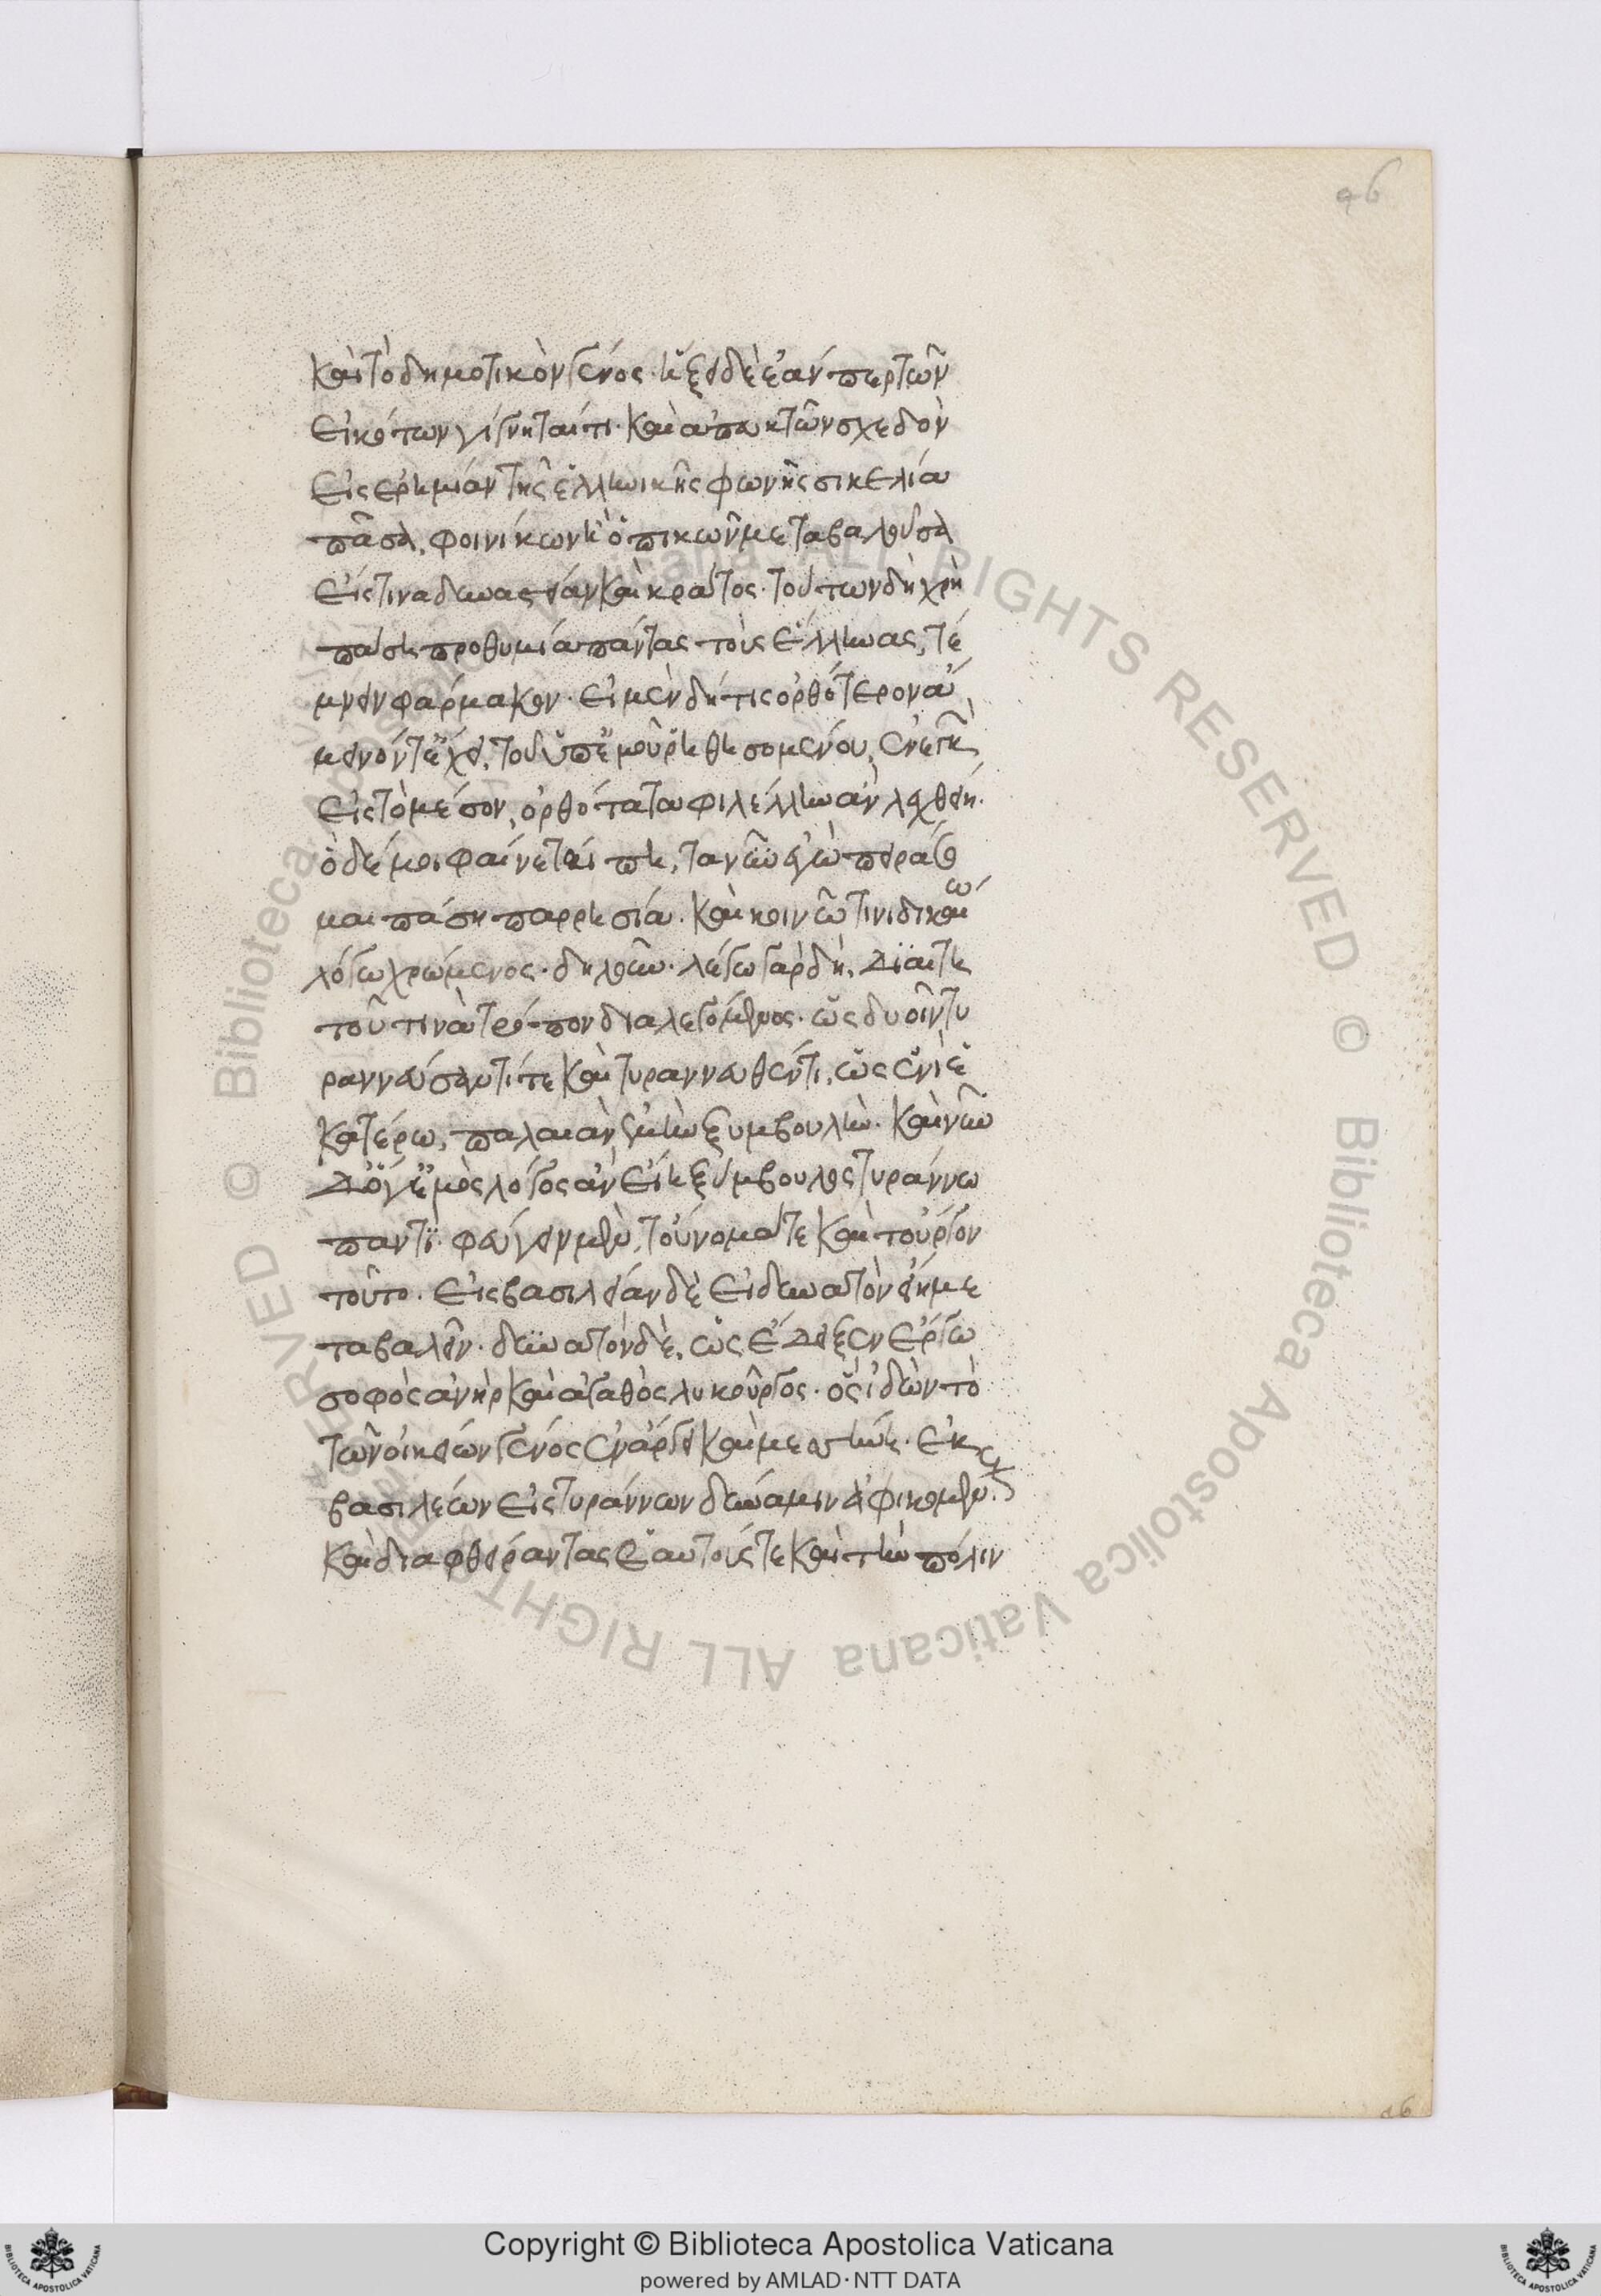 96
καὶ τὸ δημοτικὸν γένος. ἥξει δὲ ἐάν περ τῶν
εἰκότων γίγνηταί τι καὶ ἀπευκτῶν σχεδὸν
εἰς ἐρημίαν τῆς ἑλληνικῆς φωνῆς σικελία
πᾶσα, φοινίκων ἢ ὀπικῶν μεταβαλοῦσα
εἴς τινα δυναστείαν καὶ κράτος. τούτων δὴ χρὴ
πάσῃ προθυμίᾳ πάντας τοὺς ἕλληνας, τέ
μνειν φάρμακον. εἰ μὲν δή τις ὀρθότερον ἄ
μεινόν τ' ἔχει, τοῦ ὑπ' ἐμοῦ ῥηθησομένου, ἐνεγκὼν
εἰς τὸ μέσον, ὀρθότατα φιλέλλην ἂν λεχθείη.
ὃ δέ μοι φαίνεταί πῃ, τὰ νῦν ἐγὼ πειράσο
μαι πάσῃ παρρησίᾳ. καὶ κοινῷ τινὶ δικαίῳ
λόγῳ χρώμενος. δηλοῦν. λέγω γὰρ δὴ, διαιτη
τοῦ τινὰ τρόπον διαλεγόμενος. ὡς δυοῖν τυ
ραννεύσαντί τε καὶ τυραννευθέντι, ὡς ἑνὶ ἑ
κατέρῳ, παλαιὰν ἐμὴν ξυμβουλήν. καὶ νῦν
δ' ὅ γ' ἐμὸς λόγος ἂν εἴη ξύμβουλος τυράννῳ
παντί. φεύγειν μὲν, τοὔνομά τε καὶ τοὖργον
τοῦτο. εἰς βασιλείαν δὲ εἰ δυνατὸν εἴη με
ταβαλεῖν. δυνατὸν δὲ, ὡς ἔδειξεν ἔργῳ
σοφὸς ἀνὴρ καὶ ἀγαθὸς λυκοῦργος. ὃς ἰδὼν τὸ
τῶν οἰκείων γένος ἐν ἄργει καὶ μεσσήνῃ. ἐκ
βασιλέων εἰς τυράννων δύναμιν ἀφικομένους.
καὶ διαφθείραντας ἑαυτούς τε καὶ τὴν πόλιν
96
© Biblioteca Apostolica Vaticana ALL RIGHTS RESERVED © Biblioteca Apostolica Vaticana ALL RIGHTS RESERVED
Copyright © Biblioteca Apostolica Vaticana
powered by AMLAD·NTT DATA